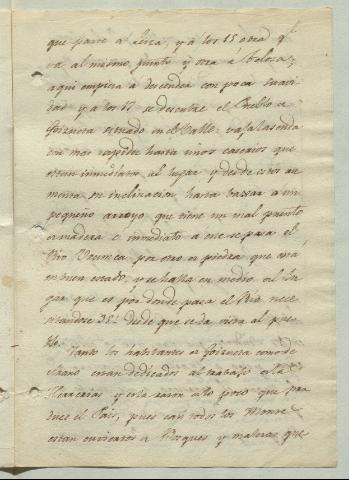 que parte a Leiza, y a los 15 otra qe.
va al mismo punto y otra á Tolosa,
aqui empieza a descender con poca suavi
dad y a los 17 se descubre el Pueblo de
Goizueta situado en el Valle: baja la senda
con mas rapidez hasta unos caserios que
estan inmediatos al lugar y desde estos au
menta su inclinacion hasta bajar a un
pequeño arroyo que tiene un mal puente
de madera e inmediato a ese se pasa el
Rio Urumea por otro de piedra que está
en buen estado, y se halla en medio del lu
gar que es por donde pasa el Rio nece
sitandose 35' desde que se da vista al pue
blo.
Tanto los habitantes de Goizueta como de
Arano estan dedicados al trabajo de las
Herrerias y esta razon a lo poco que pro
duce el Pais, pues casi todos los Montes
estan cubiertos de Bosques y maleza que